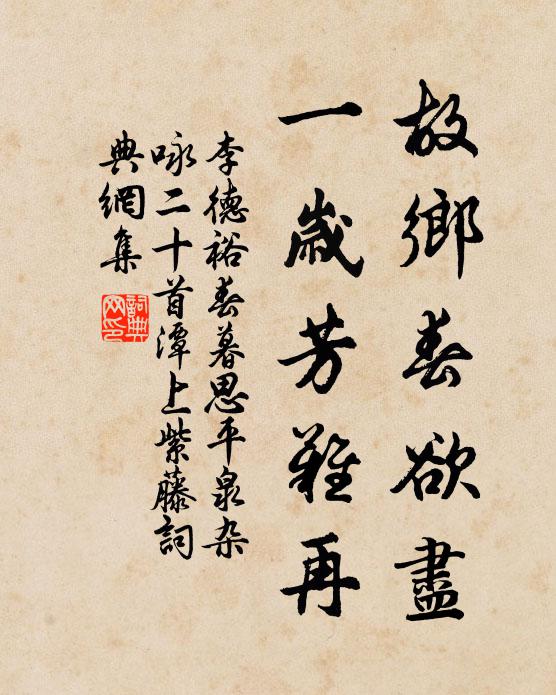 故鄉春欲盡
一歲芳難再
李德裕春暮思平泉杂
咏二十首潭上紫藤詞
典網集
詞典网印